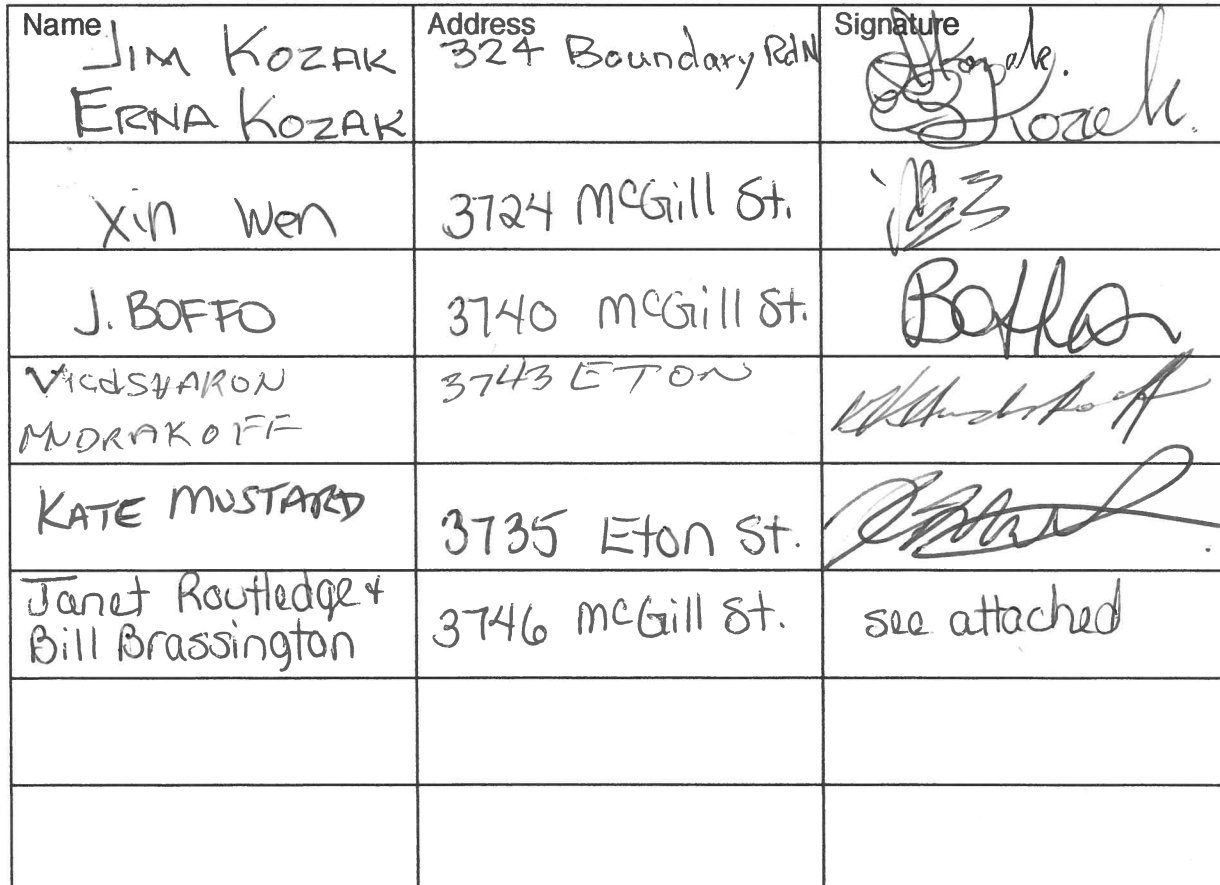 Name Address Signature
JIM KOZAK 324 Boundary Rd N Kozak.
ERNA KOZAK Kozak.
Xin Wen 3724 McGill St.
J. BOFFO 3740 McGill St. Boffo
VIC & SHARON 3743 ETON
MUDRAKOFF
KATE MUSTARD 3735 Eton St.
Janet Routledge &
Bill Brassington 3746 McGill St. see attached